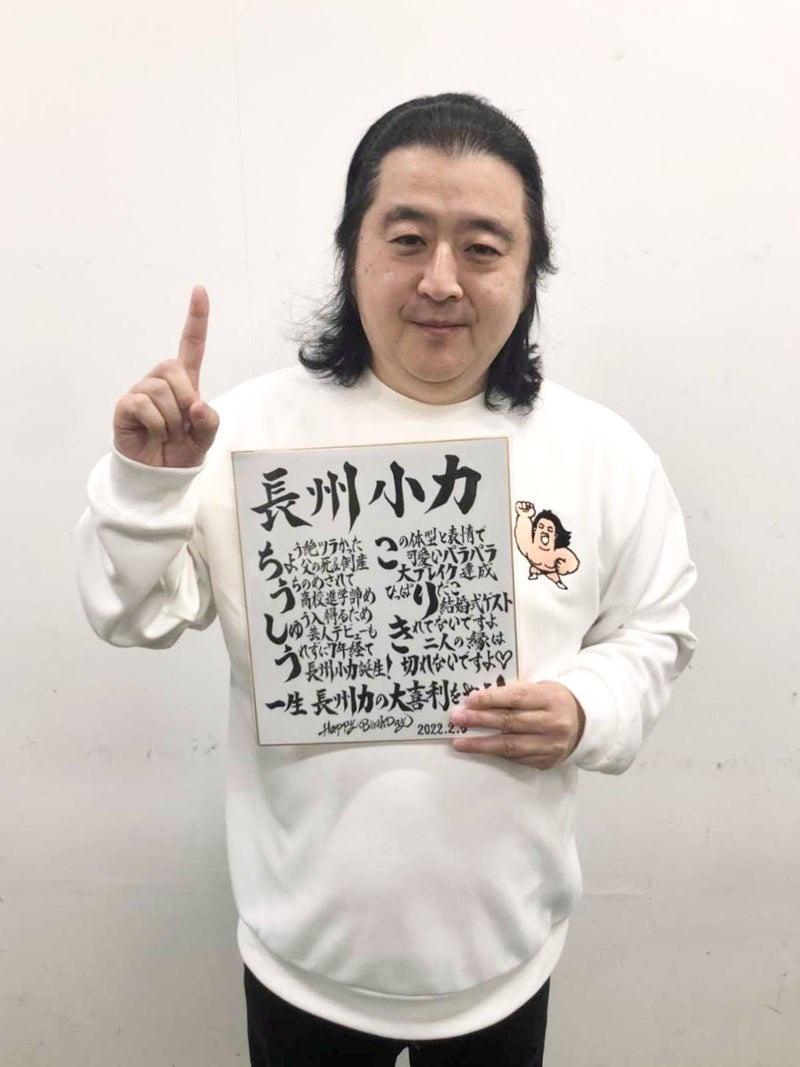 長州小力
ちょう絶ツラかった
父の死&倒産
うちのめされて
高校進学諦め
しゅう入得るため
芸人デビューも
うれずに7年経て
長州小力誕生!
この体型と表情で
可愛いパラパラ
大ブレイク達成
ひっぱりだこ
結婚式ゲスト
きれてないですよ
二人の縁は
切れないですよ♡
一生 長州力の大喜利を
Happy Birthday
2022.2.